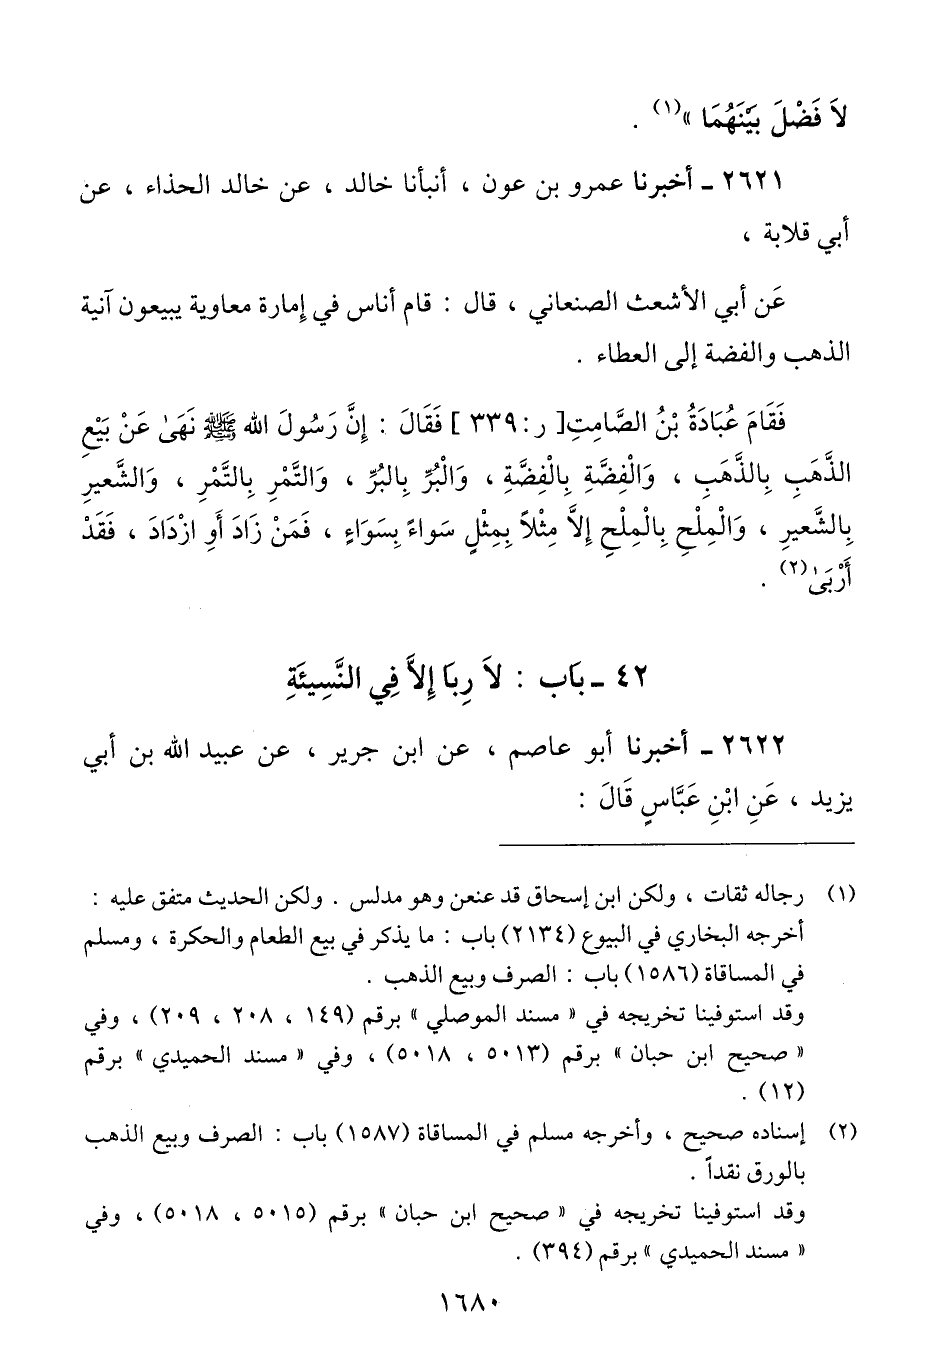 لاَ فَضْلَ بَيْنَهُمَا »(١) .
٢٦٢١ ـ أخبرنا عمرو بن عون ، أنبأنا خالد ، عن خالد الحذاء ، عن
أبي قلابة ،
عَن أبي الأشعث الصنعاني ، قال : قام أناس في إمارة معاوية يبيعون آنية
الذهب والفضة إلى العطاء .
فَقَامَ عُبَادَةُ بْنُ الصَّامِتِ[ ر: ٣٣٩ ] فَقَالَ : إِنَّ رَسُولَ الله ﷺ نَهَىٰ عَنْ بَيْعِ
الذَّهَبِ بِالذَّهَبِ ، وَالْفِضَّةِ بِالْفِضَّةِ ، وَالْبُرِّ بِالبُرِّ ، وَالتَّمْرِ بِالتَّمْرِ ، وَالشَّعيرِ
بِالشَّعيرِ ، وَالْمِلْحِ بِالْمِلْحِ إِلاَّ مِثْلاً بِمِثْلٍ سَواءً بِسَوَاءٍ ، فَمَنْ زَادَ أَوِ ازْدَادَ ، فَقَدْ
أَرْبَىٰ(٢) .
٤٢ ـ بَاب : لاَ رِبَا إِلاَّ فِي النَّسِيئَةِ
٢٦٢٢ ـ أخبرنا أبو عاصم ، عن ابن جرير ، عن عبيد الله بن أبي
يزيد ، عَنِ ابْنِ عَبَّاسٍ قَالَ :
(١) رجاله ثقات ، ولكن ابن إسحاق قد عنعن وهو مدلس . ولكن الحديث متفق عليه :
أخرجه البخاري في البيوع (٢١٣٤) باب : ما يذكر في بيع الطعام والحكرة ، ومسلم
في المساقاة (١٥٨٦) باب : الصرف وبيع الذهب .
وقد استوفينا تخريجه في « مسند الموصلي » برقم (١٤٩ ، ٢٠٨ ، ٢٠٩) ، وفي
« صحيح ابن حبان » برقم (٥٠١٣ ، ٥٠١٨) ، وفي « مسند الحميدي » برقم
(١٢) .
(٢) إسناده صحيح ، وأخرجه مسلم في المساقاة (١٥٨٧) باب : الصرف وبيع الذهب
بالورق نقداً .
وقد استوفينا تخريجه في « صحيح ابن حبان » برقم (٥٠١٥ ، ٥٠١٨) ، وفي
« مسند الحميدي » برقم (٣٩٤) .
١٦٨٠